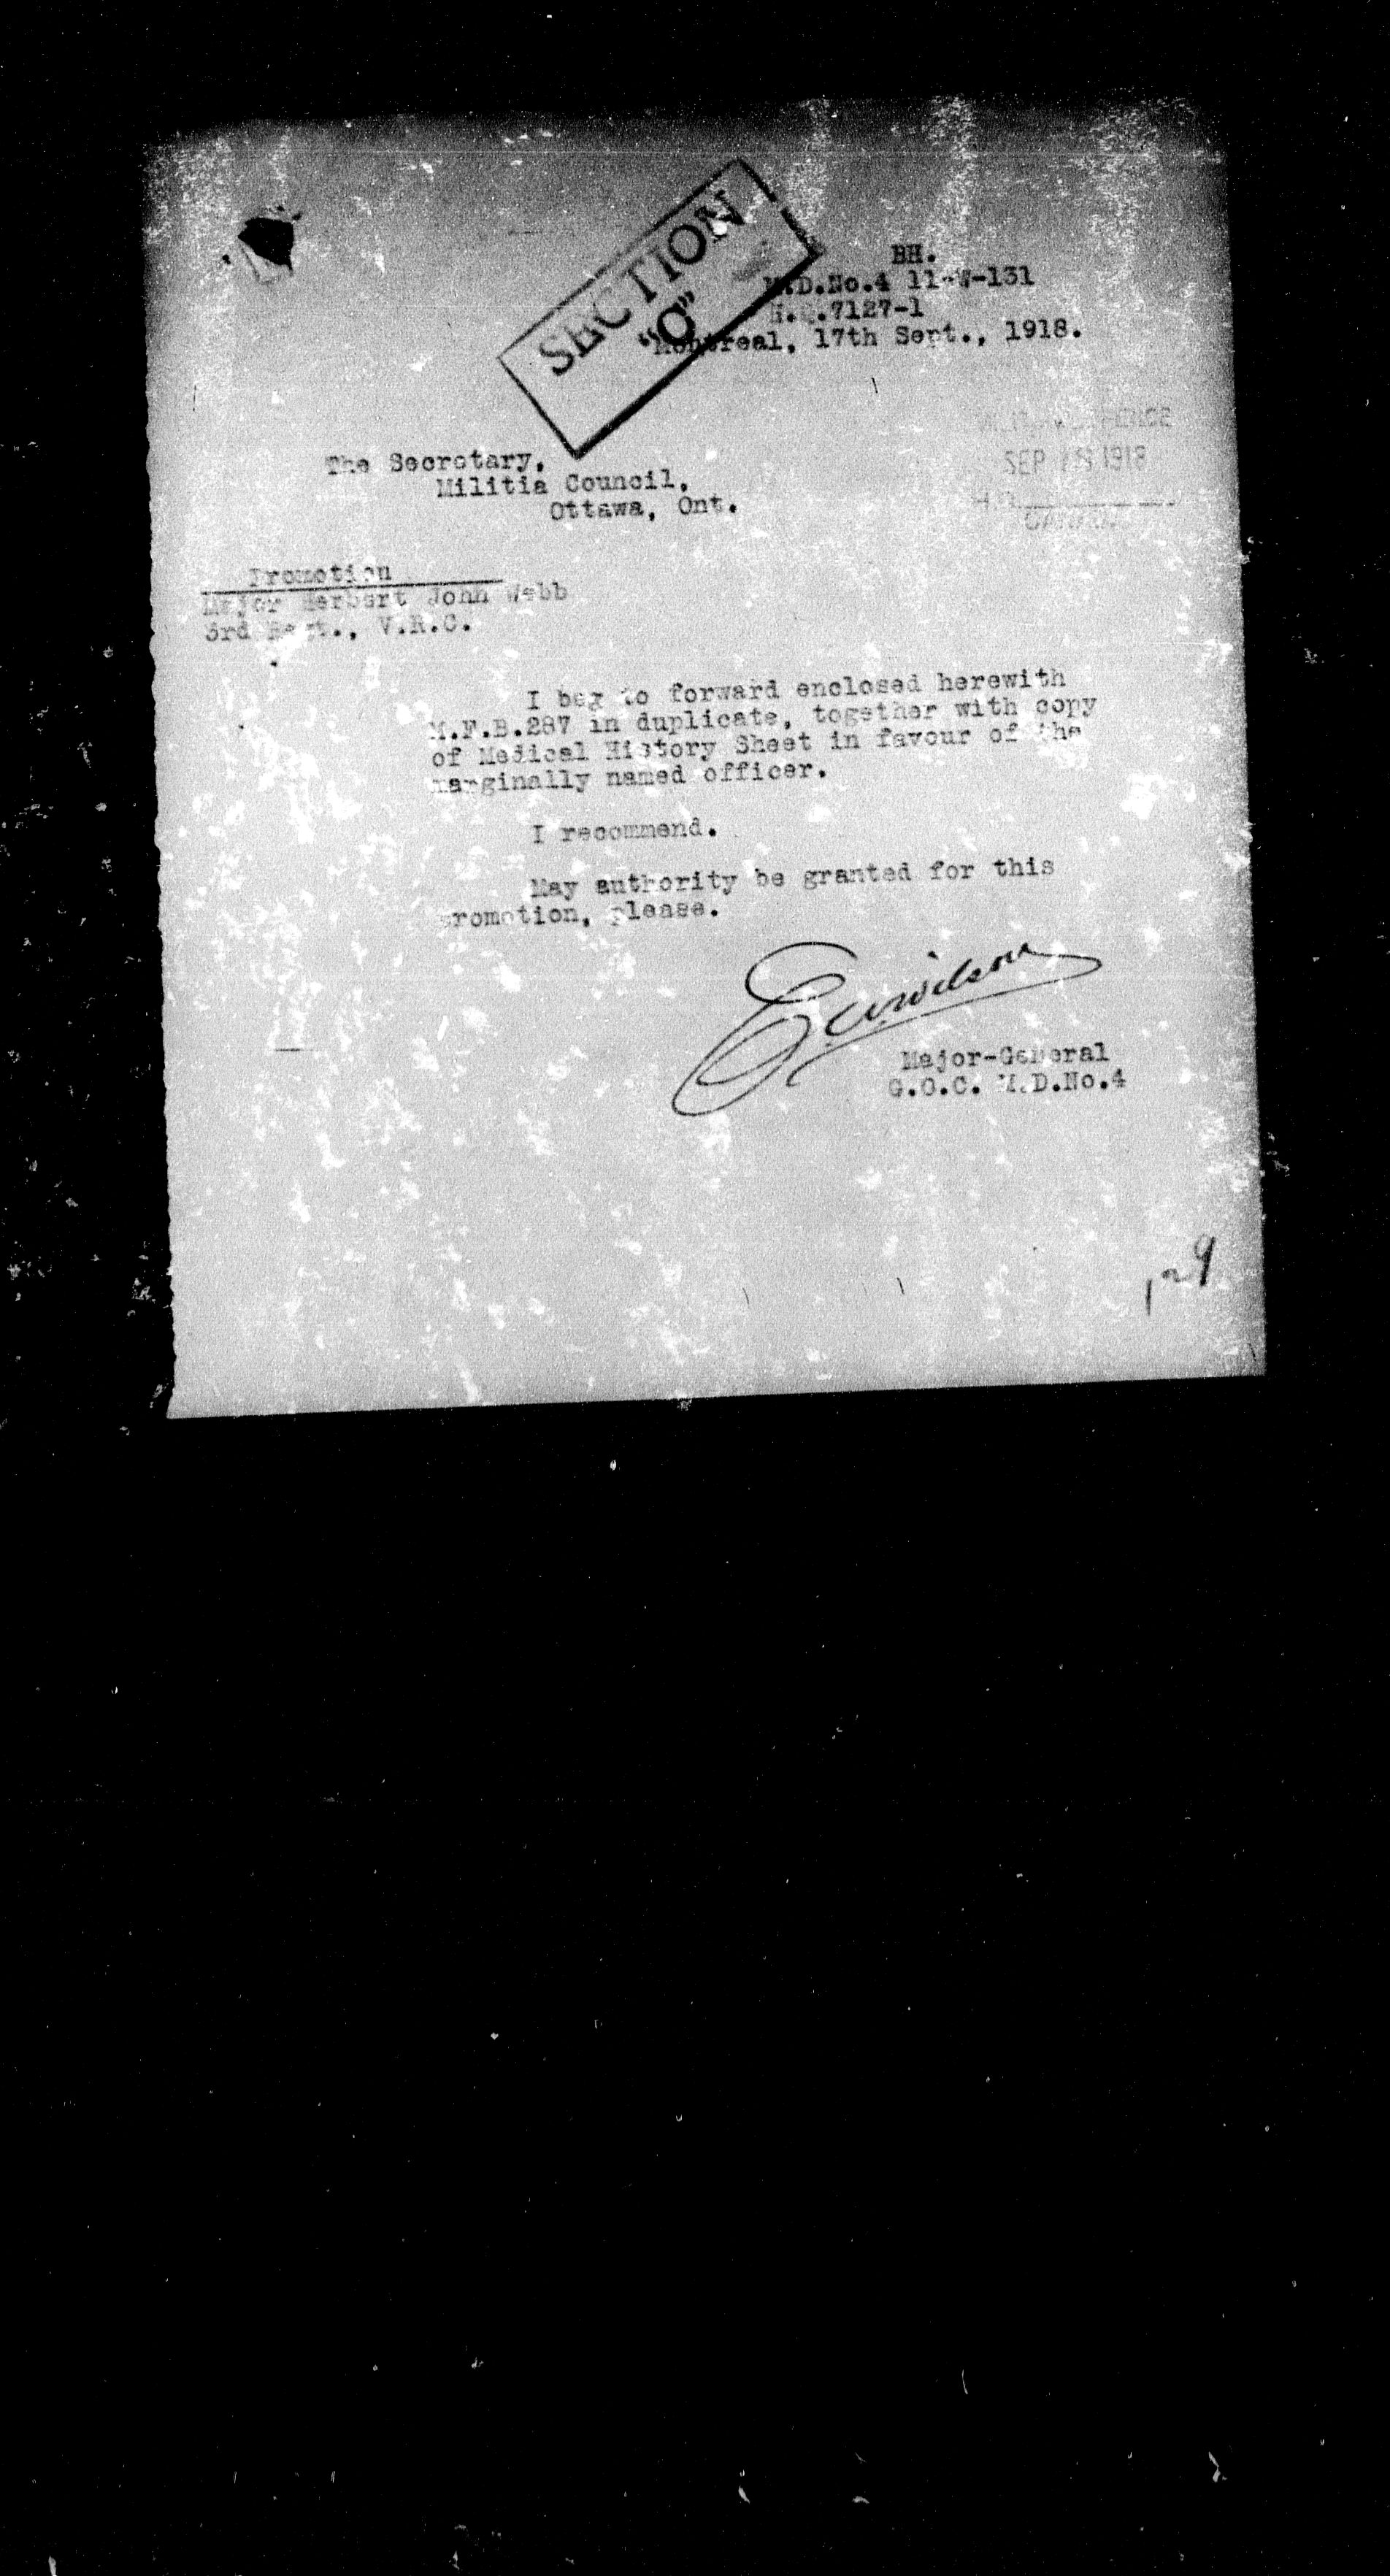 SECTION
"O"
BH.
M.D.No.4 11-W-131
7127-1
Montreal, 17th Sept., 1918.
SEP 1918
The Secretary,
Militia Council,
Ottawa, Ont.
Promotion
Major Herbert John Webb
3rd Regt., V.R.C.
I beg to forward enclosed herewith
M.F.B.287 in duplicate, together with copy
of Medical History Sheet in favour of the
marginally named officer.
I recommend.
May authority be granted for this
promotion, please.
EWWilson
Major-General
G.O.C. M.D.No.4